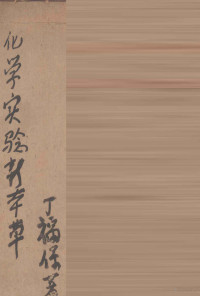 化学实验新本草
丁福保著